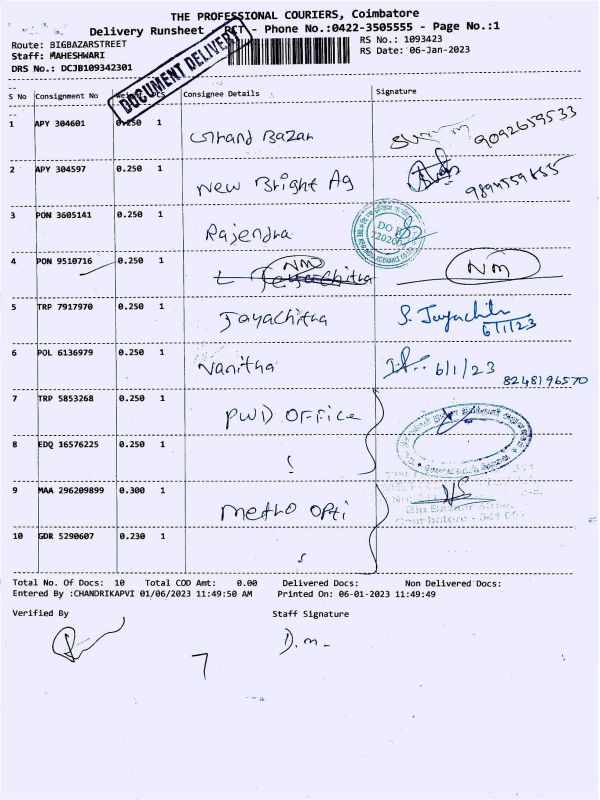 THE PROFESSIONAL COURIERS, Coimbatore
Delivery Runsheet - PCT - Phone No.:0422-3505555 - Page No.:1
Route: BIGBAZARSTREET RS No.: 1093423
Staff: MAHESHWARI RS Date: 06-Jan-2023
DRS No.: DCJB109342301
DOCUMENT DELIVERY
S No Consignment No Weight PCS Consignee Details Signature
1 APY 304601 0.250 1 Grand Bazar 9092659533
2 APY 304597 0.250 1 New Bright Ag
3 PON 3605141 0.250 1 Rajendra
DO
4 PON 9510716 0.250 1 Jayachitra NM NM
5 TRP 7917970 0.250 1 Jayachitra S. Jayachitra 6/1/23
6 POL 6136979 0.250 1 Vanitha 6/1/23
8248196570
7 TRP 5853268 0.250 1 PWD OFFICE
8 EDQ 16576225 0.250 1
9 MAA 296209899 0.300 1 Metro Opti
Big Bazaar Street
Coimbatore
10 GDR 5290607 0.230 1
Total No. Of Docs: 10 Total COD Amt: 0.00 Delivered Docs: Non Delivered Docs:
Entered By :CHANDRIKAPVI 01/06/2023 11:49:50 AM Printed On: 06-01-2023 11:49:49
Verified By Staff Signature
D.m-
7